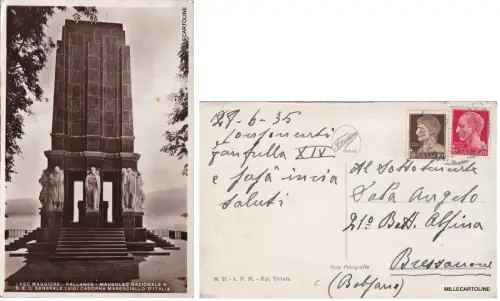 MILLECARTOLINE
LAGO MAGGIORE - PALLANZA - MAUSOLEO NAZIONALE A
S. E. IL GENERALE LUIGI CADORNA MARESCIALLO D'ITALIA
27-6-35
Fanfulla XIV
e Fofò invia
saluti
N. 21 - A. P. M. - Rip. Vietata
Vera Fotografia
Al Sottotenente
Sala Angelo
21º Batt.
Bressanone
(Bolzano)
MILLECARTOLINE